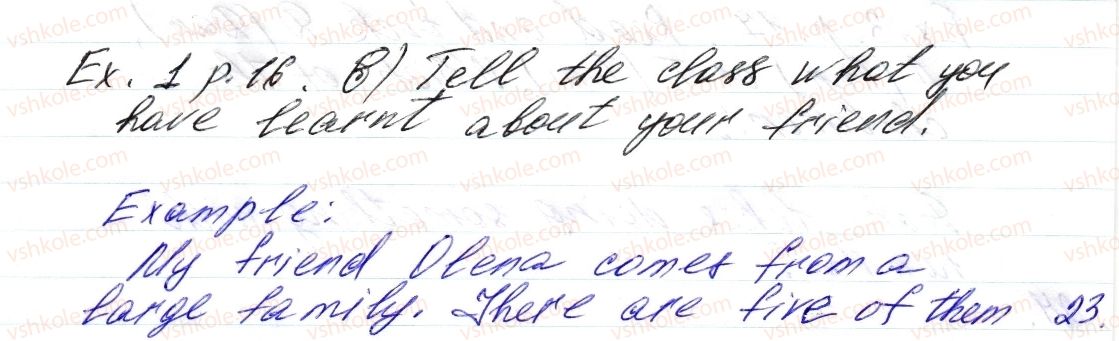 Ex. 1 p. 16. B) Tell the class what you
have learnt about your friend.
Example:
My friend Olena comes from a
large family. There are five of them 23.